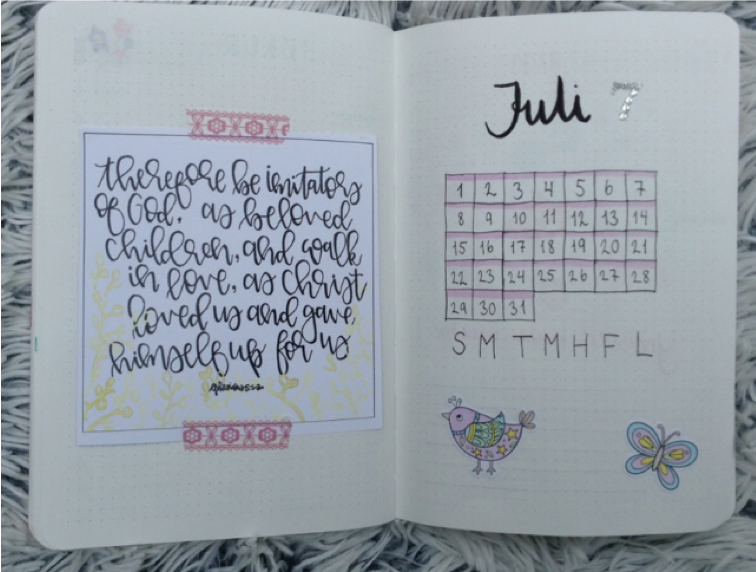 therefore be imitators
of God, as beloved
children, and walk
in love, as Christ
loved us and gave
himself up for us
Juli 7
1 2 3 4 5 6 7
8 9 10 11 12 13 14
15 16 17 18 19 20 21
22 23 24 25 26 27 28
29 30 31
S M T M H F L